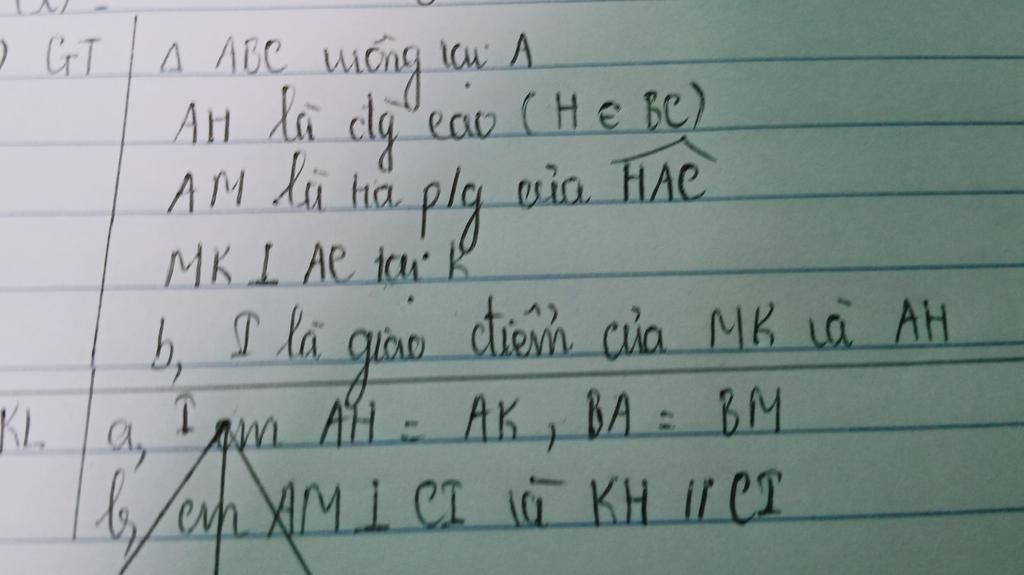 ) GT Δ ABC vuông tại A
AH là đg cao (H ∈ BC)
AM là tia p/g của HAC
MK ⊥ AC tại K
b, I là giao điểm của MK và AH
KL a, cm AH = AK, BA = BM
b, cm AM ⊥ CI và KH // CI